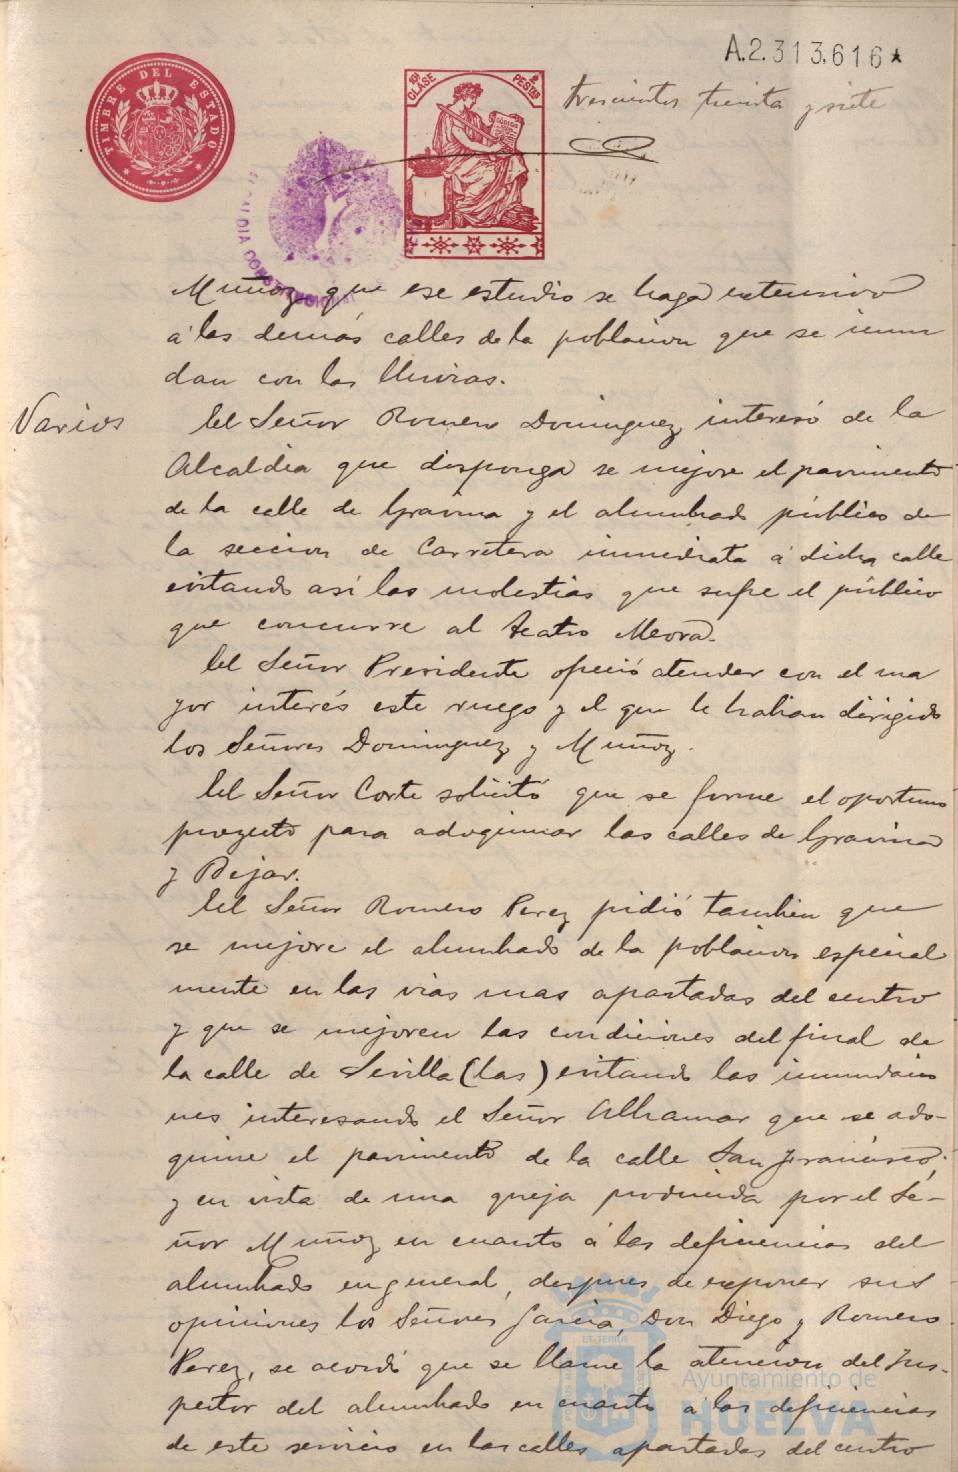 A.2.313.616*
TIMBRE DEL ESTADO
CLASE
PESETAS
trescientos treinta y siete
ALDIA CONSTITUCIONAL
Muñoz, que ese estudio se haga extensivo
á las demás calles de la poblacion que se inun
dan con las lluvias.
Varios
El Señor Romero Dominguez interesó de la
Alcaldia que disponga se mejore el pavimento
de la calle de Gravina y el alumbrado público de
la seccion de Carretera inmediata á dicha calle
evitando asi las molestias que sufre el público
que concurre al Teatro Mora.
El Señor Presidente ofreció atender con el ma
yor interés este ruego y el que le habian dirigido
los Señores Dominguez y Muñoz.
El Señor Corte solicitó que se forme el oportuno
proyecto para adoquinar las calles de Gravina
y Bejar.
El Señor Romero Perez pidió tambien que
se mejore el alumbrado de la poblacion especial
mente en las vias mas apartadas del centro
y que se mejoren las condiciones del final de
la calle de Sevilla (las) evitando las inundacio
nes interesando el Señor Alhamar que se ado-
quine el pavimento de la calle San Francisco;
y en vista de una queja producida por el Se-
ñor Muñoz en cuanto á las deficiencias del
alumbrado en general, despues de exponer sus
opiniones los Señores Garcia, Don Diego y Romero
Perez, se acordó que se llame la atencion del Ins-
pector del alumbrado en cuanto á las deficiencias
de este servicio en las calles apartadas del centro
ET TERRA
Ayuntamiento de
HUELVA